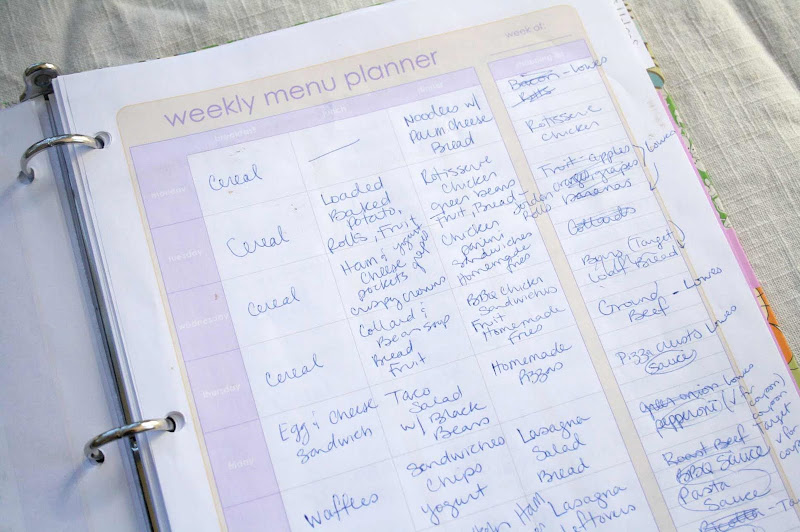 weekly menu planner
week of
monday
Cereal
Noodles w/
Parm Cheese
Bread
tuesday
Cereal
Loaded
Baked
Potato,
Rolls, Fruit
Rotisserie
Chicken
green beans
Fruit, Bread
wednesday
Cereal
Ham & yogurt
Cheese grapes
pockets
crispy crowns
Chicken
panini
Sandwiches
Homemade
Fries
thursday
Cereal
Collard &
Bean soup
Bread
Fruit
BBQ Chicken
Sandwiches
Fruit
Homemade
Fries
friday
Egg & Cheese
Sandwich
Taco
Salad
w/ Black
Beans
Homemade
Pizzas
Waffles
Sandwiches
Chips
yogurt
Lasagna
Salad
Bread
Ham
Lasagna
Bacon - Lowes
Rolls
Rotisserie
Chicken
Fruit - apples
grapes
bananas
Lowes
Rolls
Collards
(Target
Loaf Bread
Ground
Beef - Lowes
Pizza crusts Lowes
Sauce
green onion Lowes
pepperoni (v for
coupon)
Roast Beef Target
BBQ Sauce
Pasta
Sauce
Ricotta